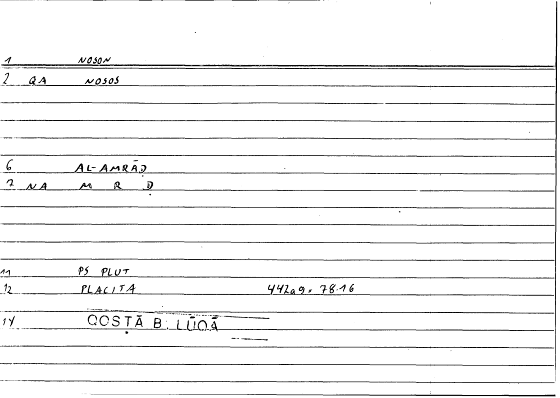 1 NOSON
2 QA NOSOS
6 AL-AMRĀḌ
7 NA M R Ḍ
11 PS PLUT
12 PLACITA 442a9. 78.16
14 QOSṬĀ B. LŪQĀ